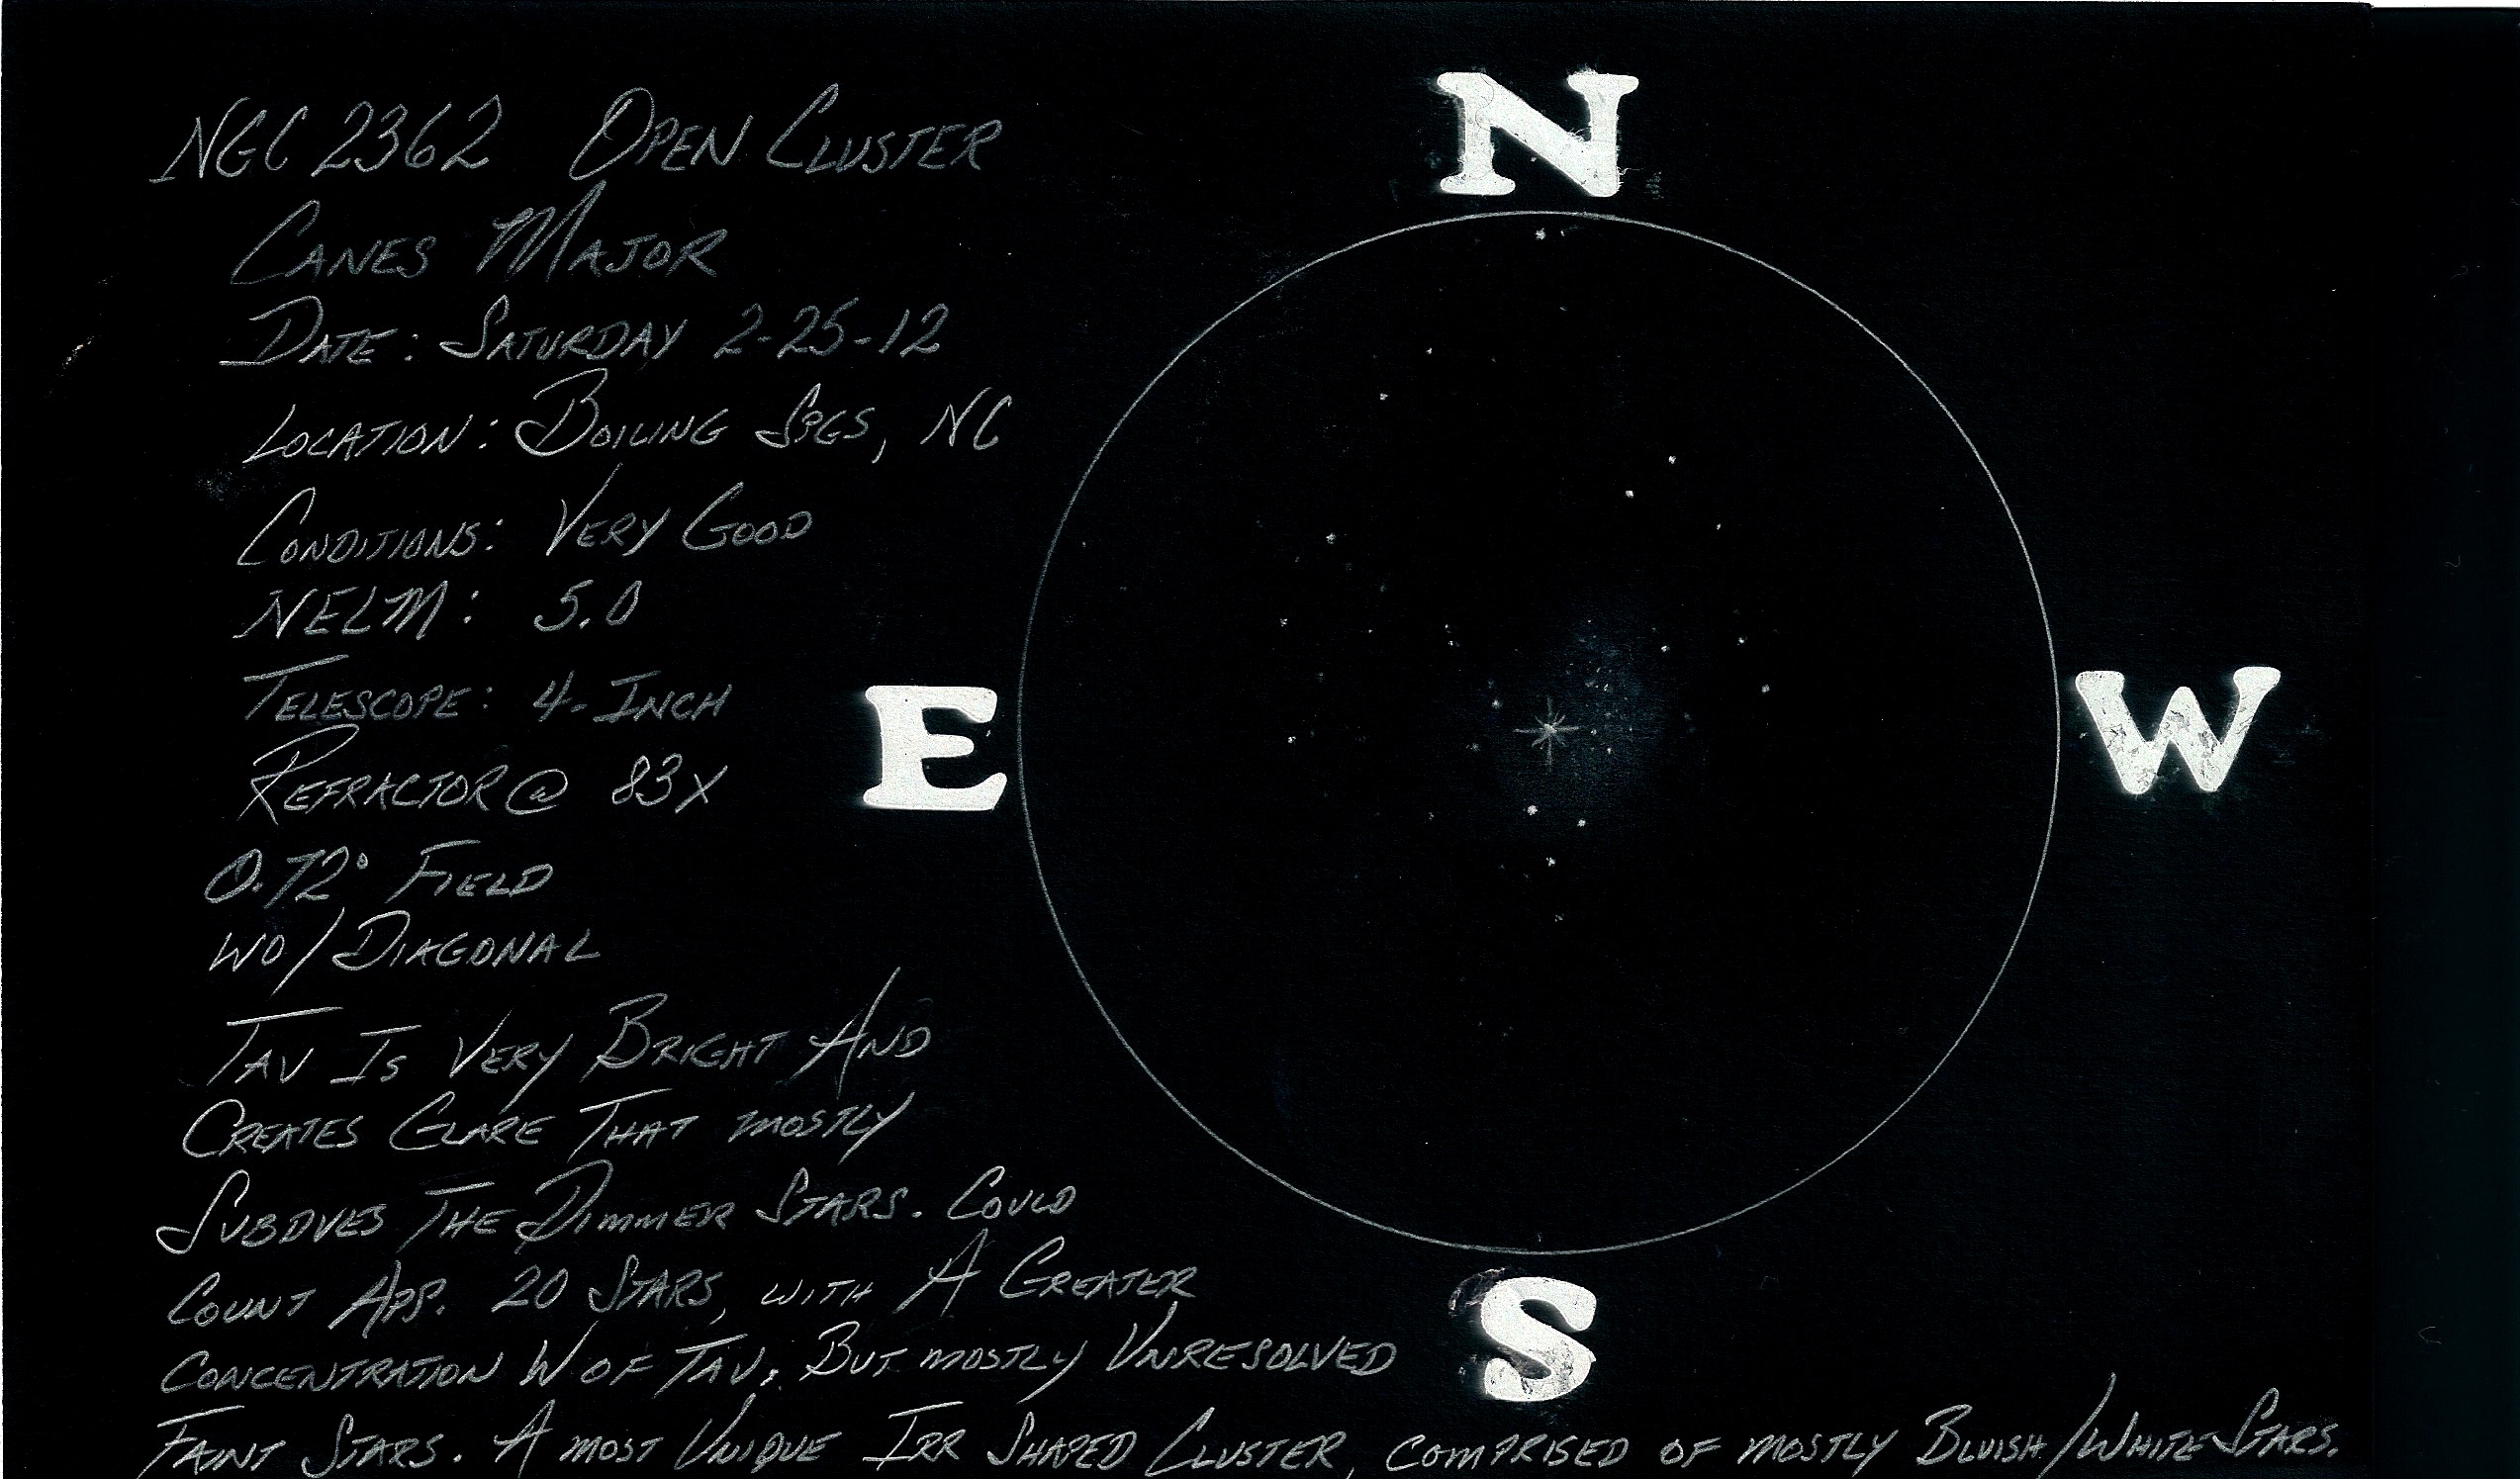 N
NGC 2362 OPEN CLUSTER
CANES MAJOR
DATE: SATURDAY 2-25-12
LOCATION: BOILING SPGS, NC
CONDITIONS: VERY GOOD
NELM: 5.0
TELESCOPE: 4-INCH
E
W
REFRACTOR @ 83X
0.72° FIELD
WO/DIAGONAL
TAU IS VERY BRIGHT AND
CREATES GLARE THAT MOSTLY
SUBDUES THE DIMMER STARS. COULD
COUNT APP. 20 STARS, WITH A GREATER
S
CONCENTRATION W OF TAU, BUT MOSTLY UNRESOLVED
FAINT STARS. A MOST UNIQUE IRR SHAPED CLUSTER, COMPRISED OF MOSTLY BLUISH/WHITE STARS.